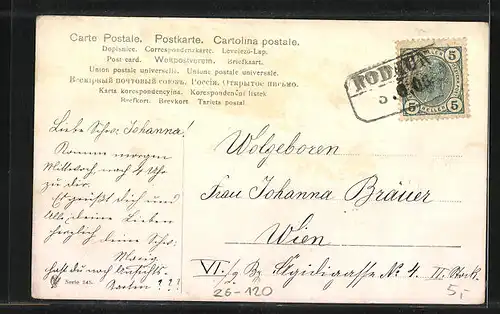 Carte Postale. Postkarte. Cartolina postale.
Dopisnice. Correspondenzkarte. Levelező-Lap.
Post-card. Weltpostverein. Briefkaart.
Union postale universelle. Unione postale universale.
Всемірный почтовый союзъ. Россія. Открытое письмо.
Karta korespondencyjna. Korespondenční lístek.
Brefkort. Brevkort. Tarjeta postal.
5
5 HELLER 5
Liebe Schw: Johanna!
Komme morgen
Mittwoch nach 4 Uhr
zu dir.
Es grüßt dich und
Alle, deine Lieben
herzlich deine Schw:
hast du noch Ansichts
Karten ???
Serie 545.
Wolgeboren
Frau Johanna Bräuer
Wien
VI./ Bz Ägidigasse No 4. II. Stock.
26-120
5,-